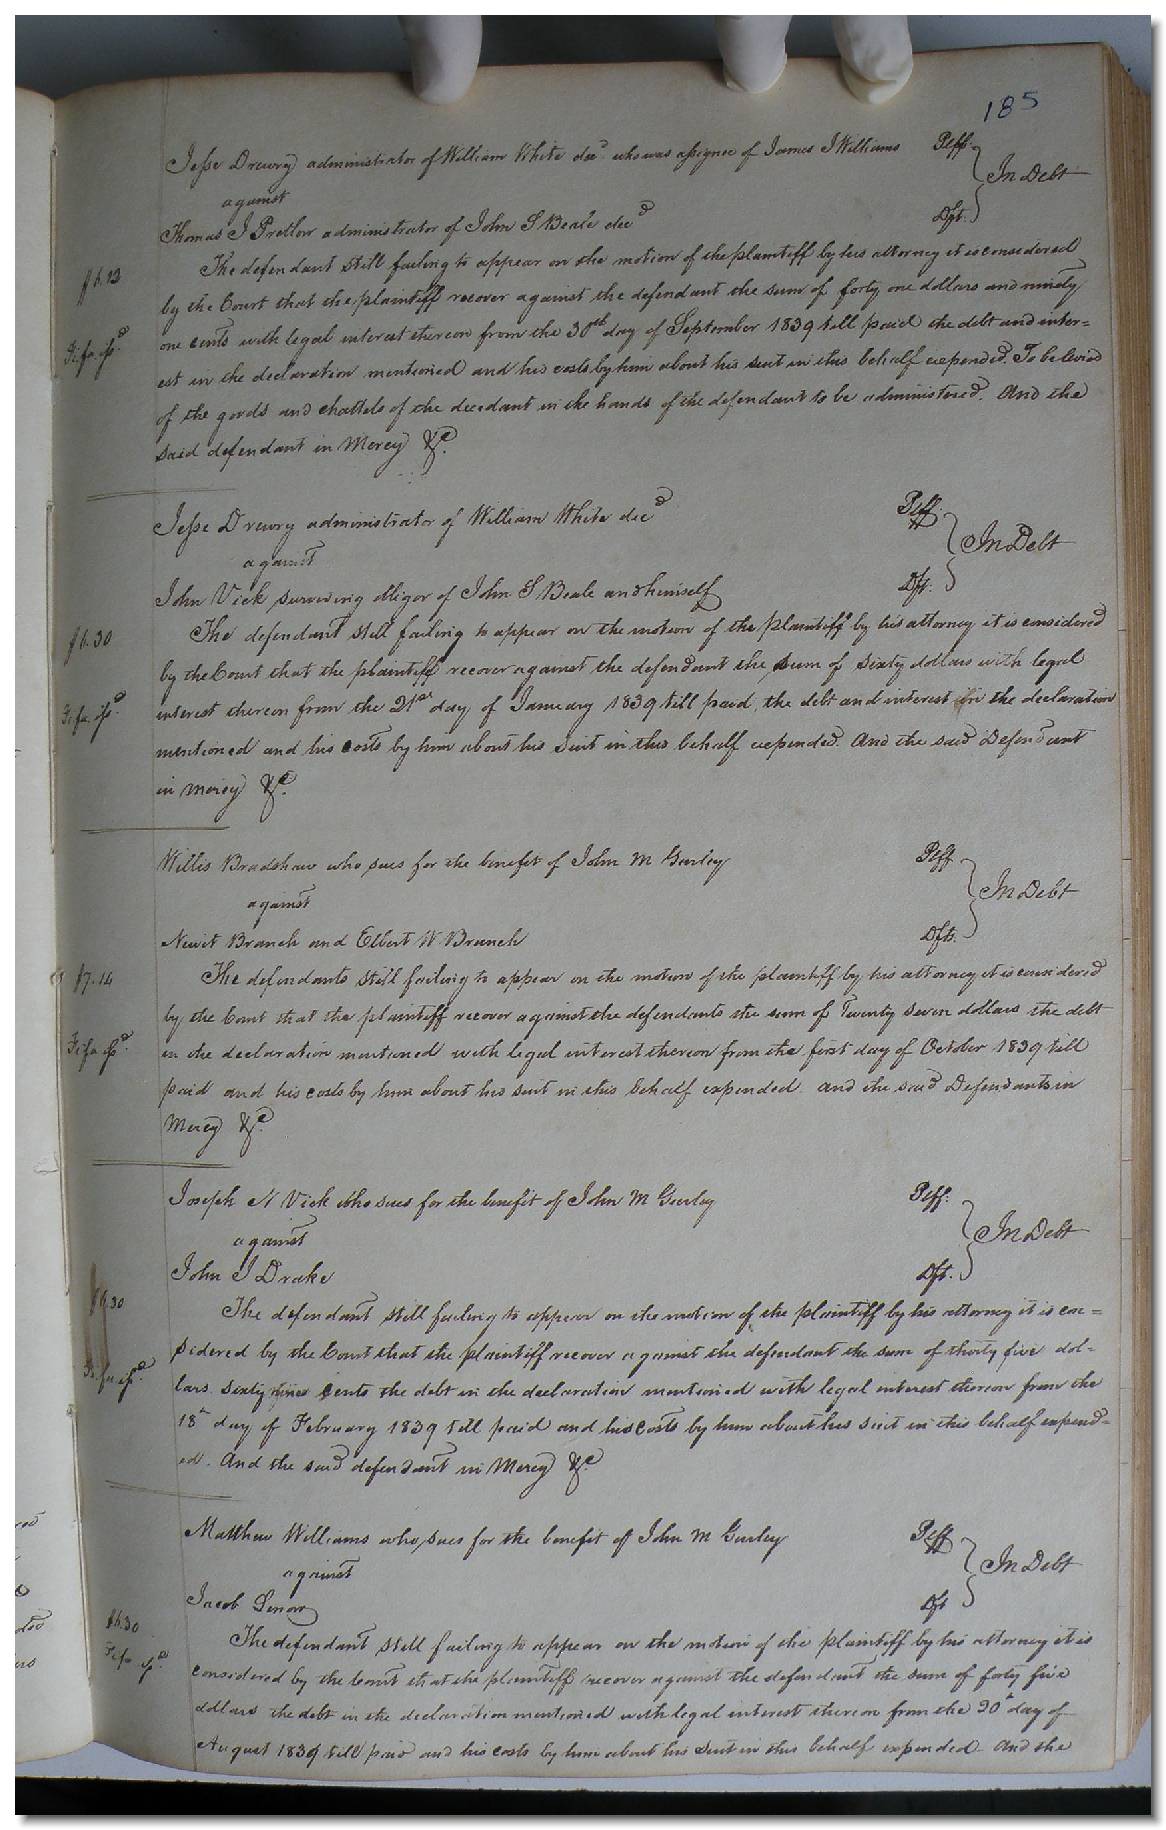 185
Jesse Drewry administrator of William White decd. who was assignee of James J Williams Plff.
against
In Debt
Thomas J Pretlow administrator of John S Beale decd Dft.
$6.13 The defendant still failing to appear on the motion of the plaintiff by his attorney it is considered
by the Court that the plaintiff recover against the defendant the sum of forty one dollars and ninety
Fi. fa. issd. one cents with legal interest thereon from the 30th day of September 1839 till paid the debt and inter=
est in the declaration mentioned and his costs by him about his suit in this behalf expended. To be levied
of the goods and chattels of the decedant in the hands of the defendant to be administered. And the
said defendant in Mercy &c.
Jesse Drewry administrator of William White decd Plff.
against
In Debt
John Vick surviving obligor of John S Beale and himself Dft.
$6.30 The defendant still failing to appear on the motion of the plaintiff by his attorney it is considered
by the Court that the plaintiff recover against the defendant the sum of Sixty dollars with legal
Fi. fa. issd. interest thereon from the 21st day of January 1839 till paid, the debt and interest in the declaration
mentioned and his costs by him about his suit in this behalf expended. And the said Defendant
in mercy &c.
Willis Bradshaw who sues for the benefit of John M Gurley Plff
against
In Debt
Newit Branch and Elbert W Branch Dfts.
$7.14 The defendants still failing to appear on the motion of the plaintiff by his attorney it is considered
by the Court that the plaintiff recover against the defendants the sum of Twenty seven dollars the debt
Fi fa issd. in the declaration mentioned with legal interest thereon from the first day of October 1839 till
paid and his costs by him about his suit in this behalf expended. and the said Defendants in
Mercy &c.
Joseph N Vick who sues for the benefit of John M Gurley Plff.
against
In Debt
John J Drake Dft.
$6.30 The defendant still failing to appear on the motion of the plaintiff by his attorney it is con=
sidered by the Court that the plaintiff recover against the defendant the sum of thirty five dol=
Fi. fa issd. lars sixty cents the debt in the declaration mentioned with legal interest thereon from the
18th day of February 1839 till paid and his costs by him about his suit in this behalf expend=
ed. And the said defendant in Mercy &c
Matthew Williams who sues for the benefit of John M Gurley Plff
against
In Debt
Jacob Dft
$6.30 The defendant still failing to appear on the motion of the plaintiff by his attorney it is
Fi fa issd. considered by the Court that the plaintiff recover against the defendant the sum of forty five
dollars the debt in the declaration mentioned with legal interest thereon from the 30th day of
August 1839 till paid and his costs by him about his suit in this behalf expended. And the